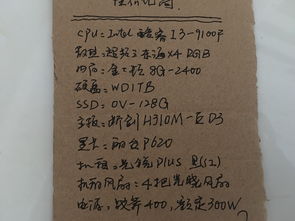 性价比图
CPU=Intel 酷睿 I3-9100F
散热=超频三 东海X4 RGB
内存=金士顿 8G-2400
硬盘=WD1TB
SSD=OV-128G
主板=斯剑 H310M-E D3
显卡=丽台P620
机箱=先马 Plus 黑(S2)
机箱风扇=4把 先马 风扇
电源=战斧400,额定300W